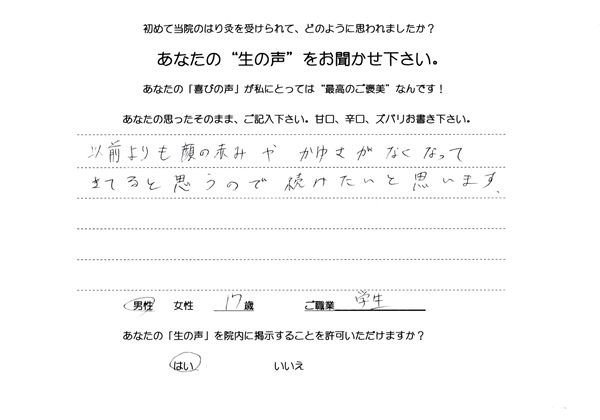 初めて当院のはり灸を受けられて、どのように思われましたか？
あなたの“生の声”をお聞かせ下さい。
あなたの「喜びの声」が私にとっては“最高のご褒美”なんです！
あなたの思ったそのまま、ご記入下さい。甘口、辛口、ズバリお書き下さい。
以前よりも顔の赤みや かゆさがなくなって
きてると思うので続けたいと思います。
男性 女性 17歳 ご職業 学生
あなたの「生の声」を院内に掲示することを許可いただけますか？
はい いいえ